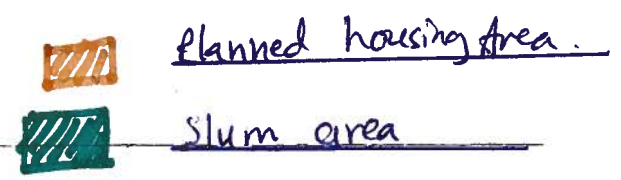 Planned housing Area.
Slum area